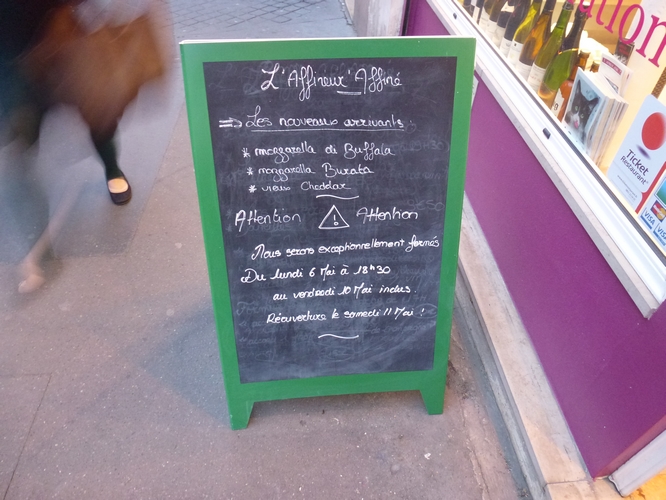 L'Affineur'Affiné
⇒ Les nouveaux arrivants :
* mozzarella di Buffala
* mozzarella Burata
* vieux Cheddar
Attention ! Attention
Nous serons exceptionnellement fermés
Du lundi 6 Mai à 18h30
au vendredi 10 Mai inclus.
Réouverture le samedi 11 Mai !
ation
Ticket
Restaurant
VISA
VISA